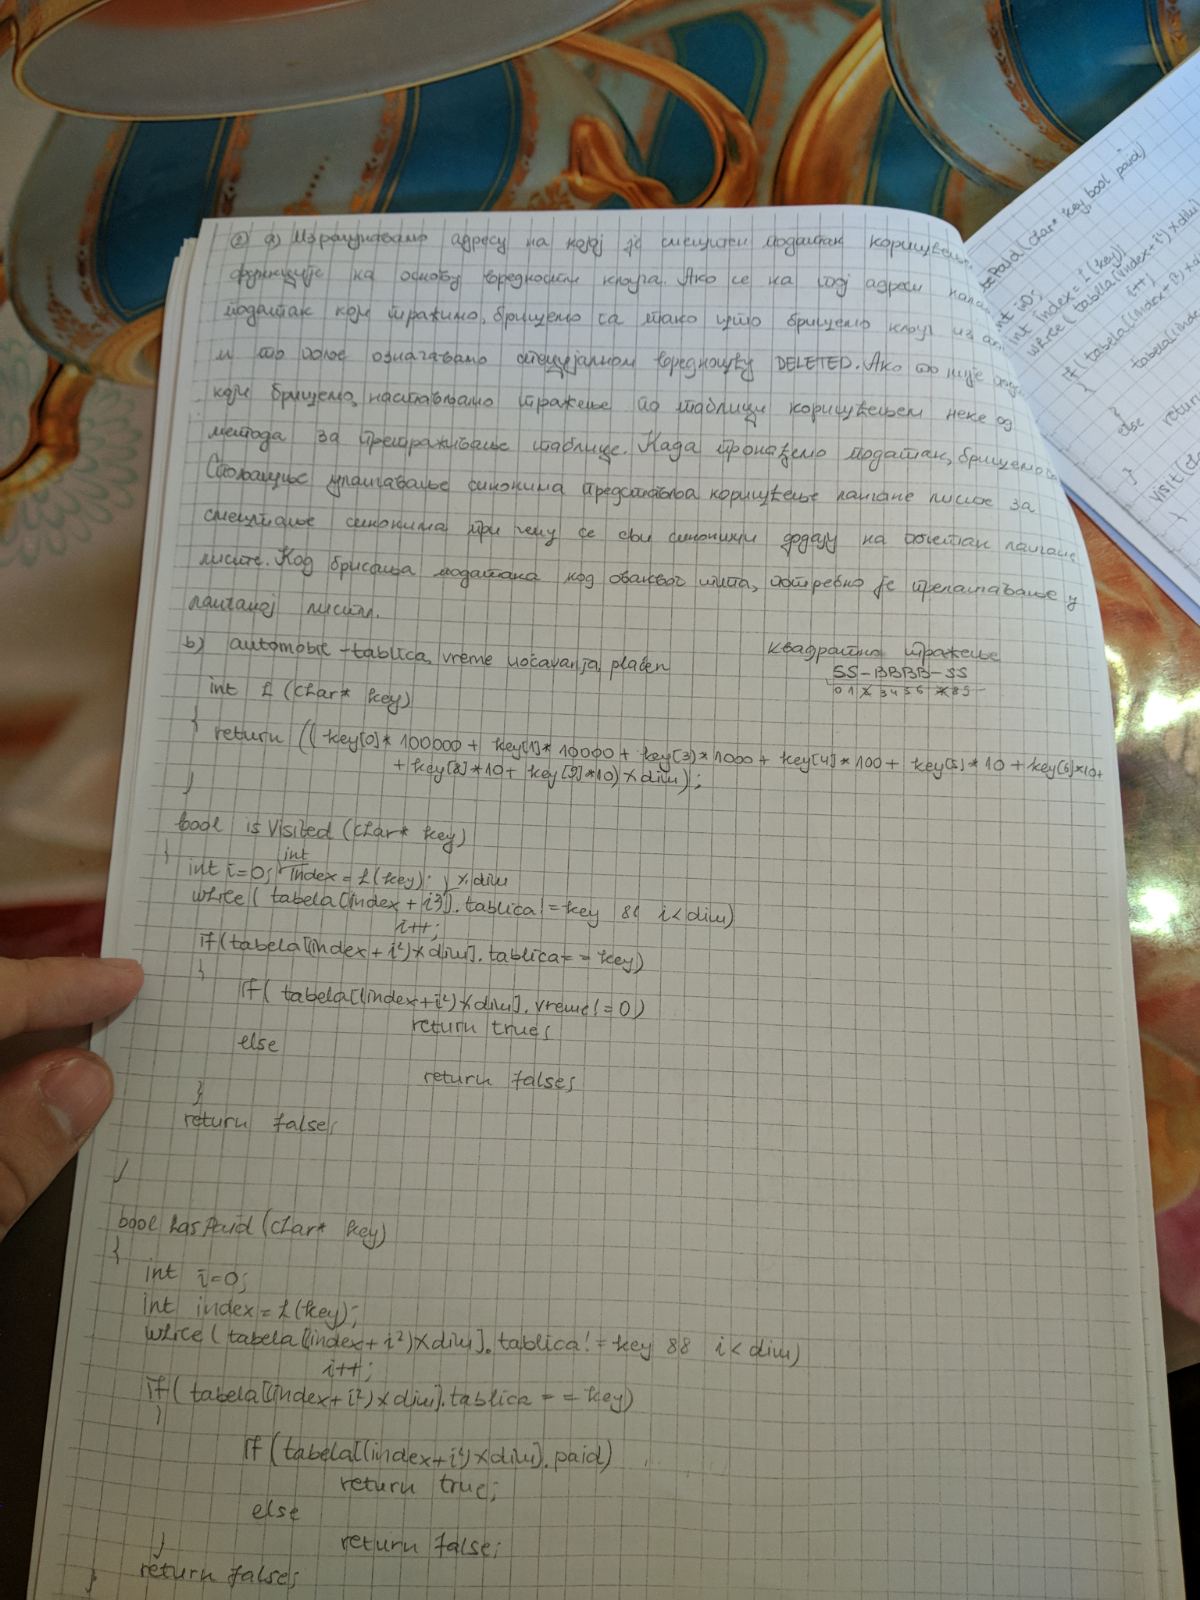 ② а) Израчунавамо адресу на којој је смештен податак коришћењем
функције на основу вредности кључа. Ако се на тој адреси
податак који тражимо, бришемо га тако што бришемо кључ из
и то поље означавамо специјалном вредношћу DELETED. Ако то није
који бришемо, настављамо тражење по таблици коришћењем неке од
метода за претраживање таблице. Када пронађемо податак, бришемо га
Спољашње уланчавање синонима представља коришћење ланчане листе за
смештање синонима при чему се сви синоними додају на почетак ланчане
листе. Код брисања података код оваквог типа, потребно је преланчавање у
ланчаној листи.
b) automobil - tablica, vreme uočavanja, plaćen
квадратно тражење
SS-BBBB-SS
int h (char* key)
{ return (( key[0]* 100000 + key[1]* 10000 + key[3]*1000 + key[4]*100 + key[5]*10 + key[6]*10+
+ key[8]*10+ key[9]*10) % dim);
}
bool isVisited (char* key)
{
int i=0; int index = h(key);
while ( tabela[(index + i²)%dim].tablica != key && i < dim)
i++;
if (tabela[(index + i²)%dim].tablica == key)
{
if ( tabela[(index+i²)%dim].vreme != 0)
return true;
else
return false;
}
return false;
}
bool hasPaid (char* key)
{
int i=0;
int index = h(key);
while (tabela[(index + i²)%dim].tablica != key && i < dim)
i++;
if ( tabela[(index+i²)%dim].tablica == key)
{
if (tabela[(index+i²)%dim].paid)
return true;
else
return false;
}
return false;
}
Paid (char* key, bool paid)
int i=0;
int index = h(key);
while ( tabela[(index + i²)%dim]
i++;
if ( tabela[(index +
{
tabela[(inde
}
else
return
}
visit(